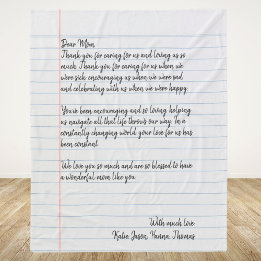 Dear Mom,
Thank you for caring for us and loving us so
much. Thank you for caring for us when we
were sick encouraging us when we were sad
and celebrating with us when we were happy.
You've been encouraging and so loving helping
us navigate all that life throws our way. In a
constantly changing world your love for us has
been constant.
We love you so much and are so blessed to have
a wonderful mom like you.
With much love
Katie, Jason, Hanna, Thomas